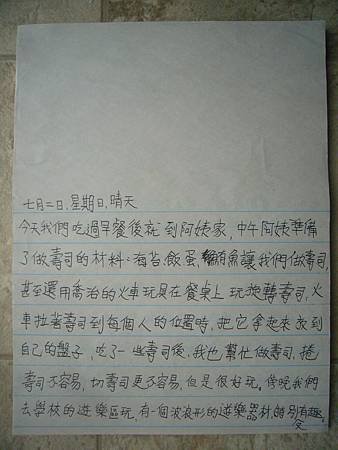 七月二日,星期日,晴天
今天我們吃過早餐後就到阿姨家,中午阿姨準備
了做壽司的材料:海苔,飯,蛋,鮪魚讓我們做壽司,
甚至還用喬治的火車玩具在餐桌上玩旋轉壽司,火
車拉著壽司到每個人的位置時,把它拿起來放到
自己的盤子,吃了一些壽司後,我也幫忙做壽司,捲
壽司不容易,切壽司更不容易,但是很好玩。傍晚我們
去學校的遊樂區玩,有一個波浪形的遊樂器材,特別有趣。